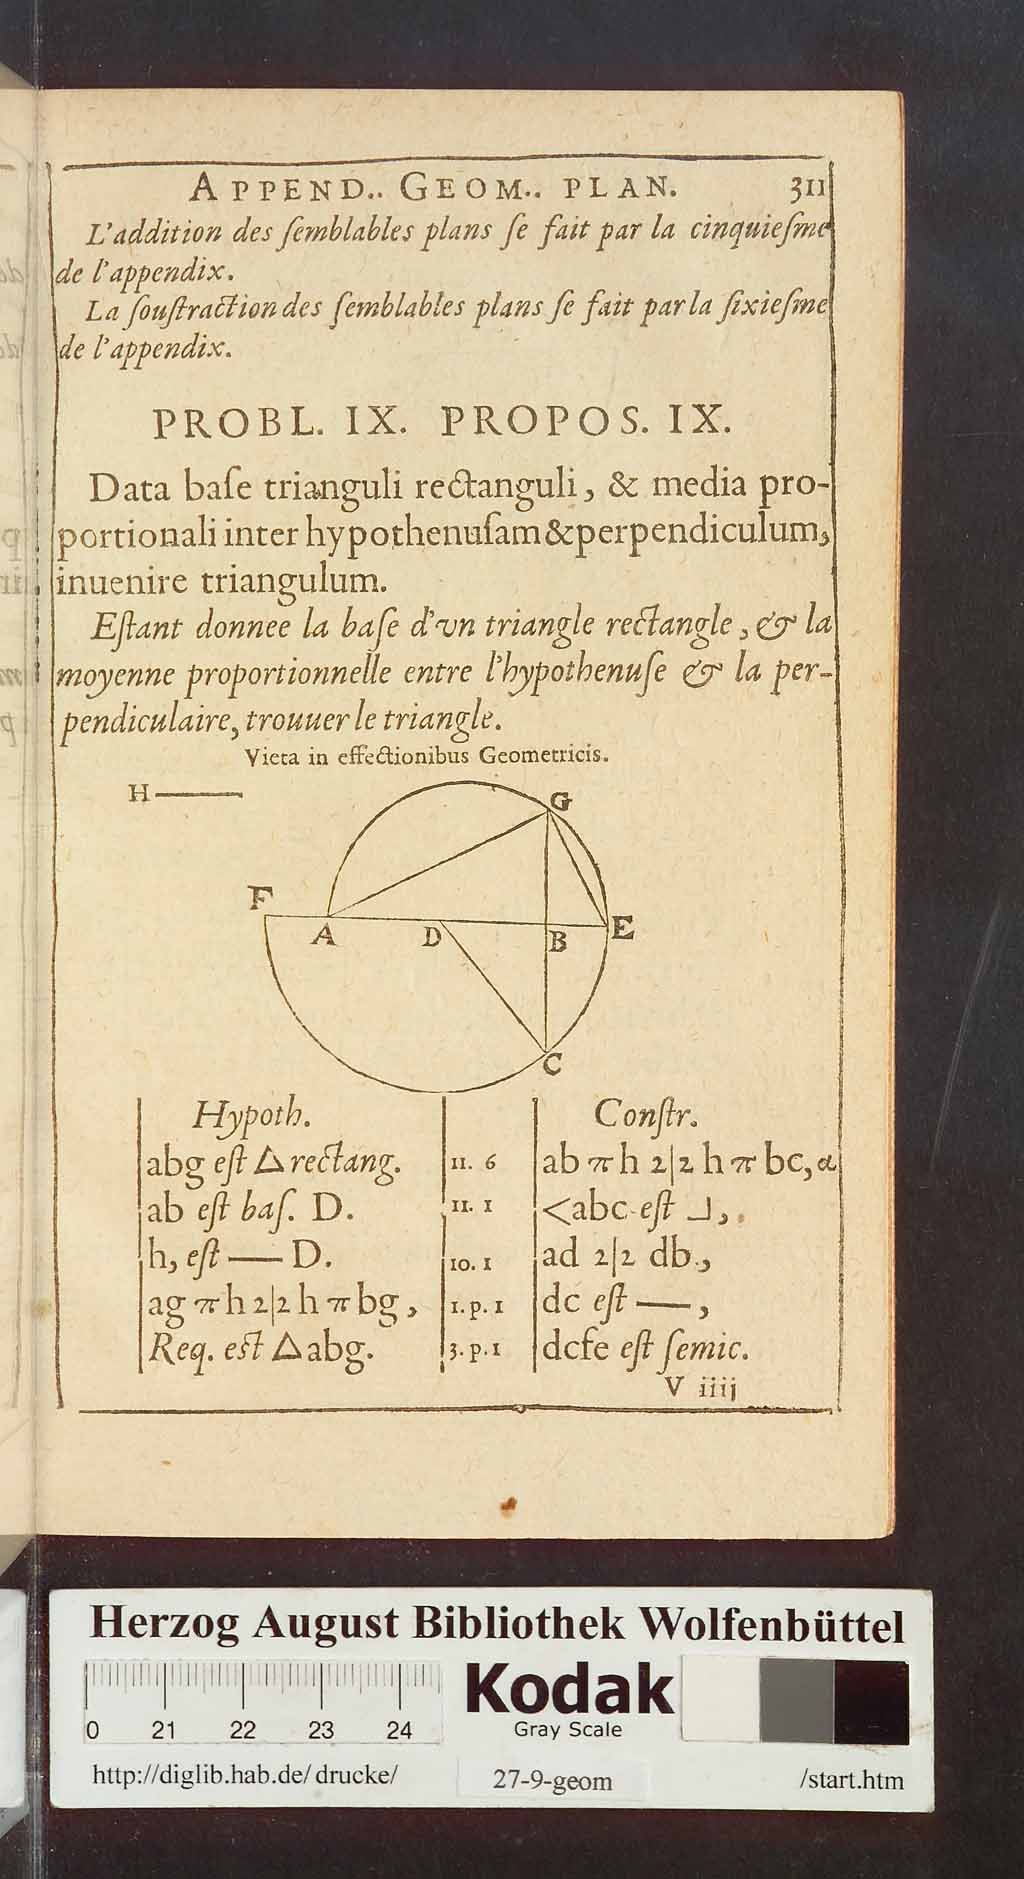 APPEND.. GEOM.. PLAN. 311
L'addition des ſemblables plans ſe fait par la cinquieſme
de l'appendix.
La ſouſtraction des ſemblables plans ſe fait par la ſixieſme
de l'appendix.
PROBL. IX. PROPOS. IX.
Data baſe trianguli rectanguli, & media pro-
portionali inter hypothenuſam & perpendiculum,
inuenire triangulum.
Eſtant donnee la baſe d'vn triangle rectangle, & la
moyenne proportionnelle entre l'hypothenuſe & la per-
pendiculaire, trouuer le triangle.
Vieta in effectionibus Geometricis.
H
G
F
A D B E
C
Hypoth. Conſtr.
abg eſt △ rectang. 11. 6 ab π h 2|2 h π bc, α
ab eſt baſ. D. 11. 1 <abc eſt ⅃,
h, eſt — D. 10. 1 ad 2|2 db,
ag π h 2|2 h π bg, 1. p. 1 dc eſt —,
Req. eſt △ abg. 3. p. 1 dcfe eſt ſemic.
V iiij
Herzog August Bibliothek Wolfenbüttel
Kodak
Gray Scale
0 21 22 23 24
http://diglib.hab.de/drucke/ 27-9-geom /start.htm